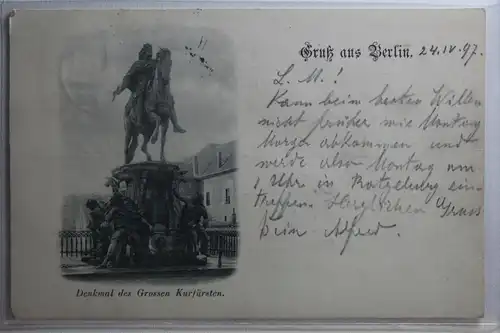 Gruß aus Berlin, 24.IV.97.
L. M.!
Kann beim besten Willen
nicht früher wie Montag
Morgen abkommen und
werde also Montag um
1 Uhr in Ratzeburg ein-
treffen. Herzlichen Gruss
Dein Alfred.
Denkmal des Grossen Kurfürsten.